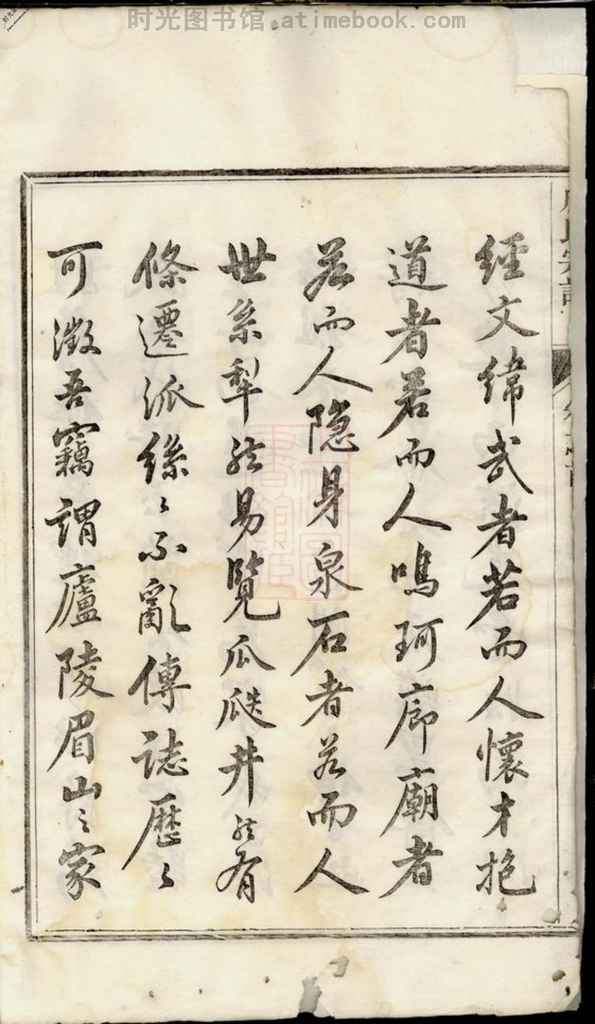 时光图书馆.atimebook.com
經文緯武者若而人懷才抱
道者若而人鳴珂廊廟者
若而人隐身泉石者若而人
世系犁然易覽瓜瓞井然有
條遷派絲〻不亂傳誌歷〻
可徵吾竊謂廬陵眉山〻家